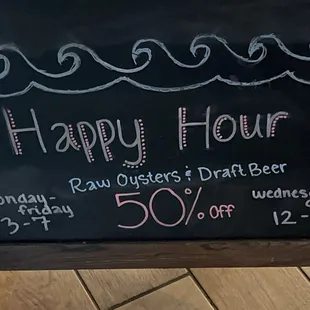 Happy Hour
Raw Oysters & Draft Beer
50% off
onday-
friday
3-7
wednes
12-